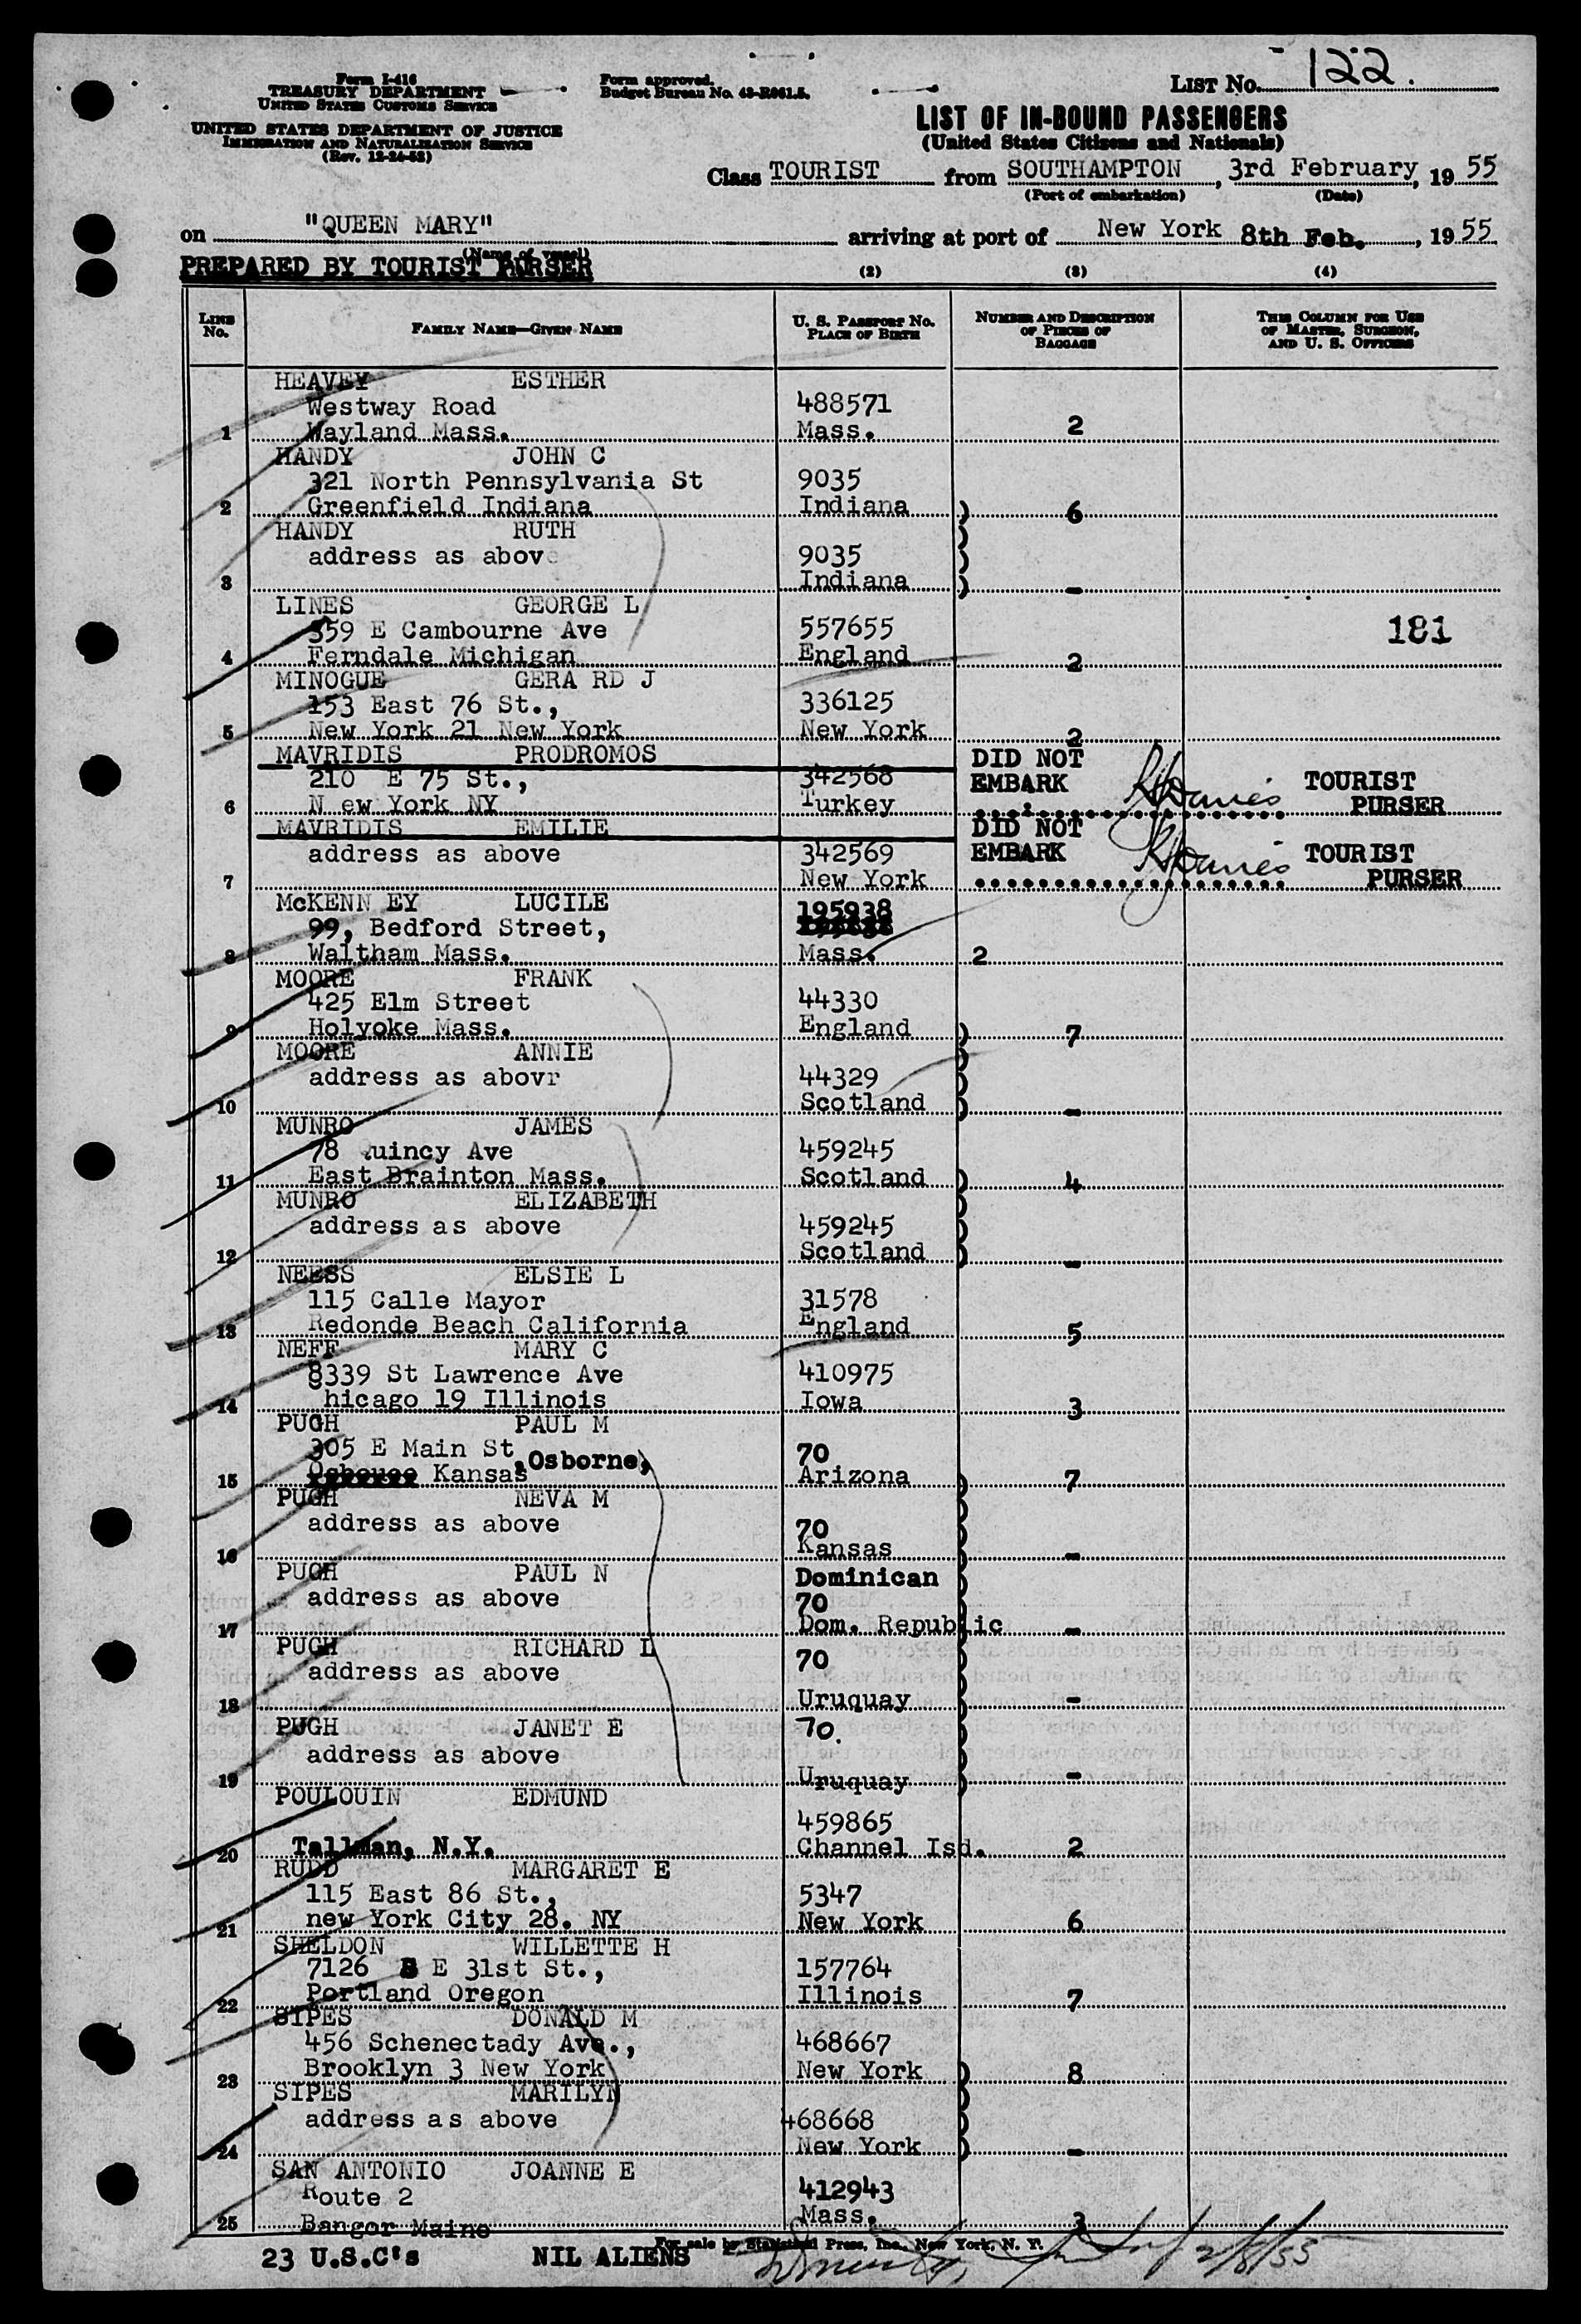 Form I-416
TREASURY DEPARTMENT
UNITED STATES CUSTOMS SERVICE
UNITED STATES DEPARTMENT OF JUSTICE
IMMIGRATION AND NATURALIZATION SERVICE
(Rev. 12-24-52)
Form approved.
Budget Bureau No. 43-R061.5.
LIST No. 122.
LIST OF IN-BOUND PASSENGERS
(United States Citizens and Nationals)
Class TOURIST from SOUTHAMPTON, 3rd February, 19 55
(Port of embarkation) (Date)
on "QUEEN MARY" arriving at port of New York 8th Feb., 19 55
(Name of vessel)
PREPARED BY TOURIST PURSER
(2) (3) (4)
LINE No. FAMILY NAME—GIVEN NAME U. S. PASSPORT No. PLACE OF BIRTH NUMBER AND DESCRIPTION OF PIECES OF BAGGAGE THIS COLUMN FOR USE OF MASTER, SURGEON, AND U. S. OFFICERS
HEAVEY ESTHER
Westway Road 488571
1 Wayland Mass. Mass. 2
HANDY JOHN C
321 North Pennsylvania St 9035
2 Greenfield Indiana Indiana ) 6
HANDY RUTH
address as above 9035
3 Indiana ) -
LINES GEORGE L
359 E Cambourne Ave 557655 181
4 Ferndale Michigan England 2
MINOGUE GERA RD J
153 East 76 St., 336125
5 New York 21 New York New York 2
MAVRIDIS PRODROMOS DID NOT
210 E 75 St., 342568 EMBARK TOURIST
6 N ew York NY Turkey PURSER
MAVRIDIS EMILIE DID NOT
address as above 342569 EMBARK TOURIST
7 New York PURSER
McKENN EY LUCILE 195938
99, Bedford Street,
8 Waltham Mass. Mass. 2
MOORE FRANK
425 Elm Street 44330
9 Holyoke Mass. England ) 7
MOORE ANNIE
address as abovr 44329
10 Scotland ) -
MUNRO JAMES
78 Quincy Ave 459245
11 East Brainton Mass. Scotland ) 4
MUNRO ELIZABETH
address as above 459245
12 Scotland ) -
NEESS ELSIE L
115 Calle Mayor 31578
13 Redonde Beach California England 5
NEFF MARY C
8339 St Lawrence Ave 410975
14 hicago 19 Illinois Iowa 3
PUGH PAUL M
305 E Main St ,Osborne, 70
15 Kansas Arizona ) 7
PUGH NEVA M
address as above 70
16 Kansas ) -
PUGH PAUL N Dominican
address as above 70
17 Dom. Republic -
PUGH RICHARD L
address as above 70
18 Uruguay ) -
PUGH JANET E 70.
address as above
19 Uruguay ) -
POULOUIN EDMUND
459865
20 Tallman, N.Y. Channel Isd. 2
RUDD MARGARET E
115 East 86 St., 5347
21 new York City 28. NY New York 6
SHELDON WILLETTE H
7126 S E 31st St., 157764
22 Portland Oregon Illinois 7
SIPES DONALD M
456 Schenectady Ave., 468667
23 Brooklyn 3 New York New York ) 8
SIPES MARILYN
address as above 468668
24 New York ) -
SAN ANTONIO JOANNE E
Route 2 412943
25 Bangor Maine Mass. 3
For sale by Statistical Press, Inc., New York, N. Y.
23 U.S.C's NIL ALIENS 2/8/55